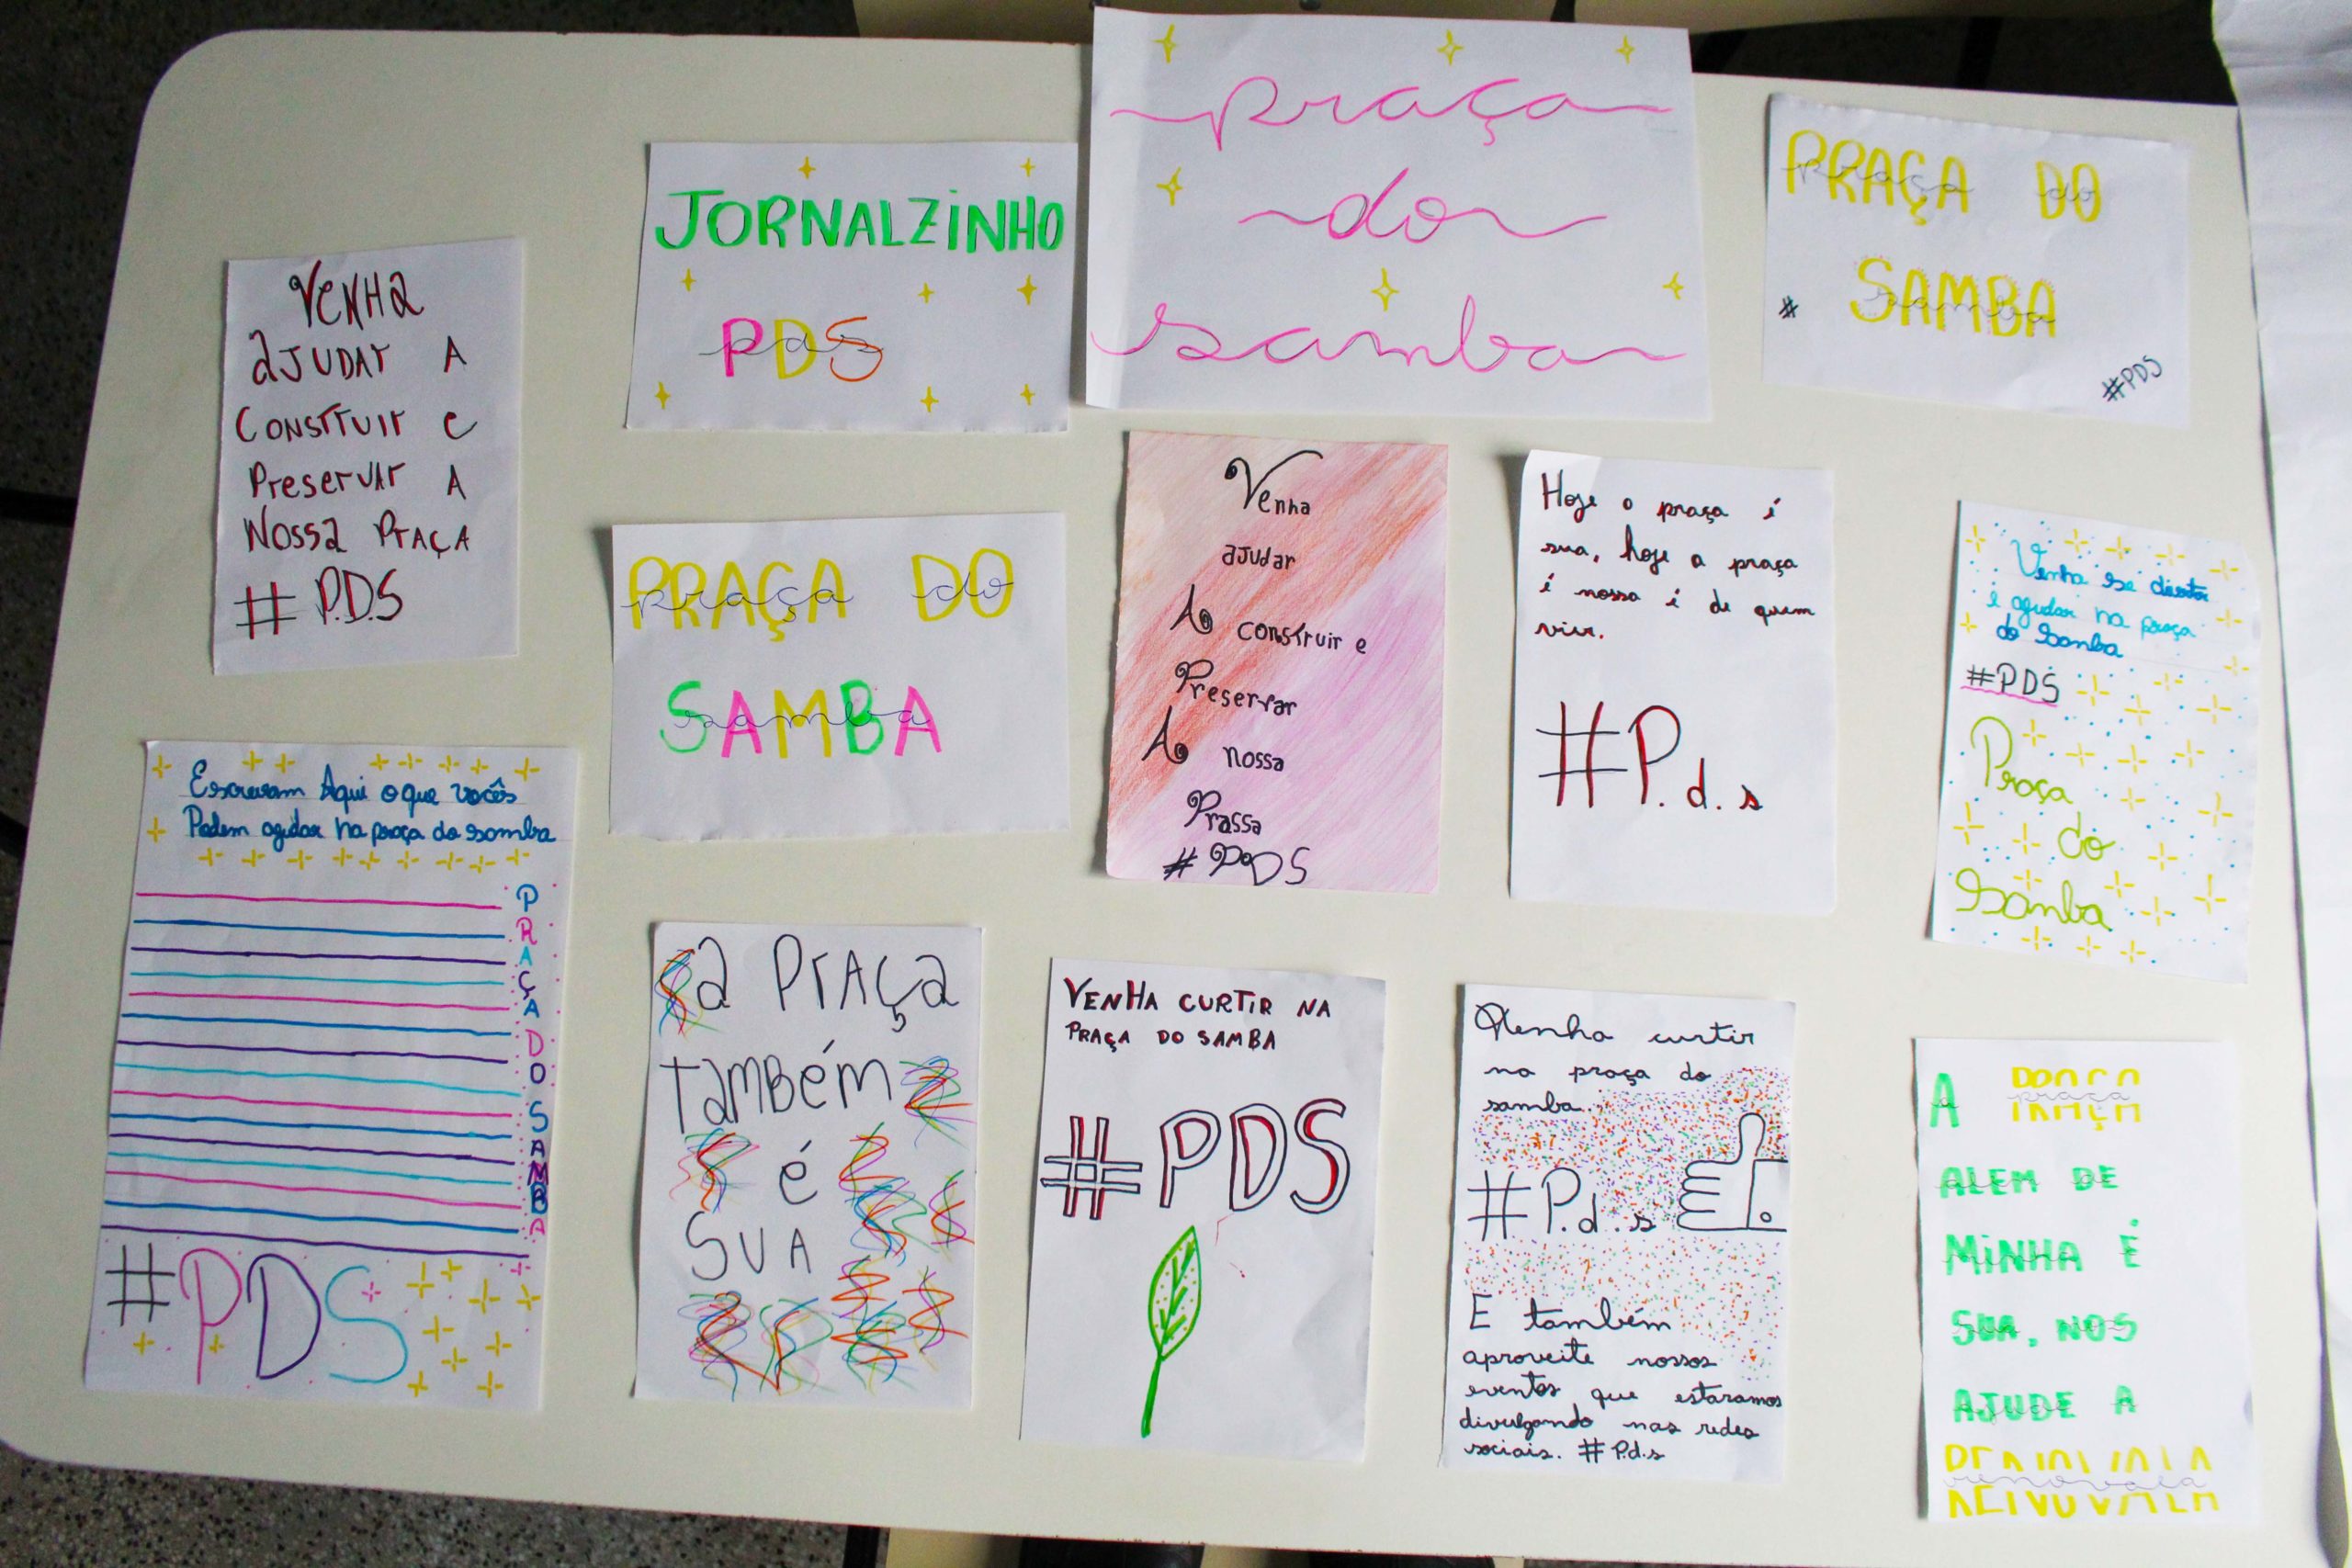 praça
do
samba
JORNALZINHO
PDS
pds
PRAÇA DO
praça do
SAMBA
samba
#
#PDS
VENHA
AJUDAr A
CONSTruir e
PreserVAr A
NOSSA PrAÇA
# P.D.S
PRAÇA DO
praça do
SAMBA
samba
Venha
aJudar
A construir e
Preservar
A nossa
Prassa
# PDS
Hoje o praça é
sua, hoje a praça
é nossa é de quem
vier.
#P.d.s
Venha se divertir
é agudar na praça
do Samba
#PDS
Praça
do
Samba
Escrevam Aqui o que vocês
Podem agudar na praça do samba
PRAÇA DO SAMBA
#PDS
a PrAÇa
também
é
SUA
VENHA CURTIR NA
PRAÇA DO SAMBA
#PDS
Venha curtir
na praça do
samba.
#P.d.s
E também
aproveite nossos
eventos que estaramos
divulgando nas redes
sociais. # P.d.s
A PRAÇA
praça
ALEM DE
MINHA É
SUA, NOS
AJUDE A
RENOVALA
renovala